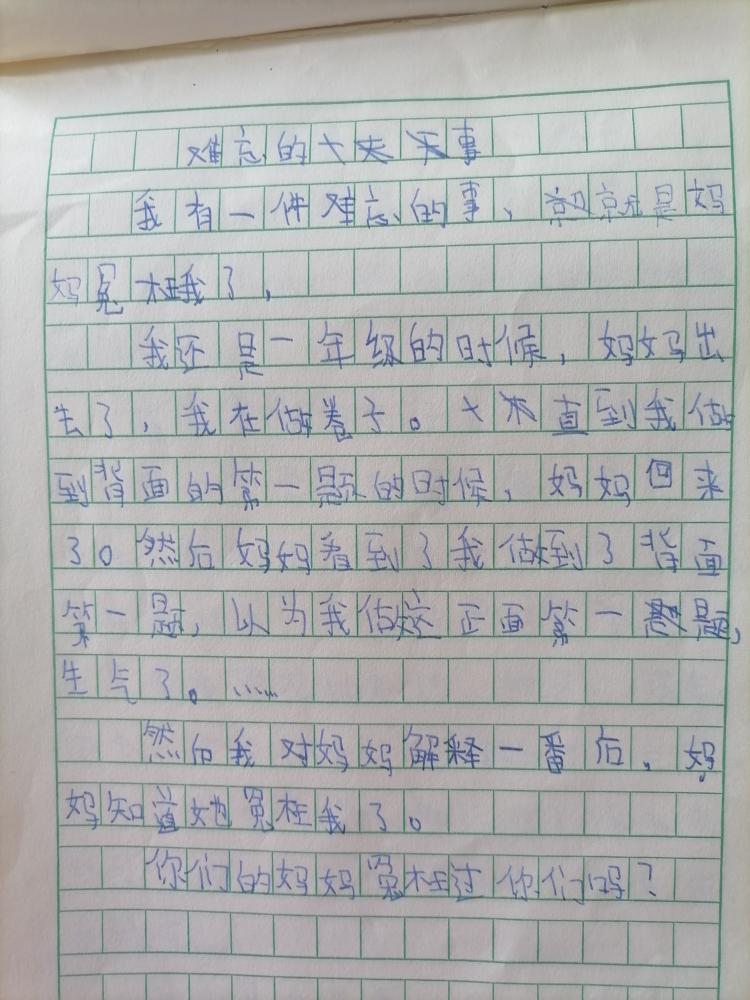 难忘的事
我有一件难忘的事、就是妈
妈冤枉我了,
我还是一年级的时候,妈妈出
去了,我在做卷子。直到我做
到背面的第一题的时候,妈妈回来
了。然后妈妈看到了我做到了背面
第一题,以为我做这正面第一题,
生气了。……
然后我对妈妈解释一番后,妈
妈知道她冤枉我了。
你们的妈妈冤枉过你们吗?